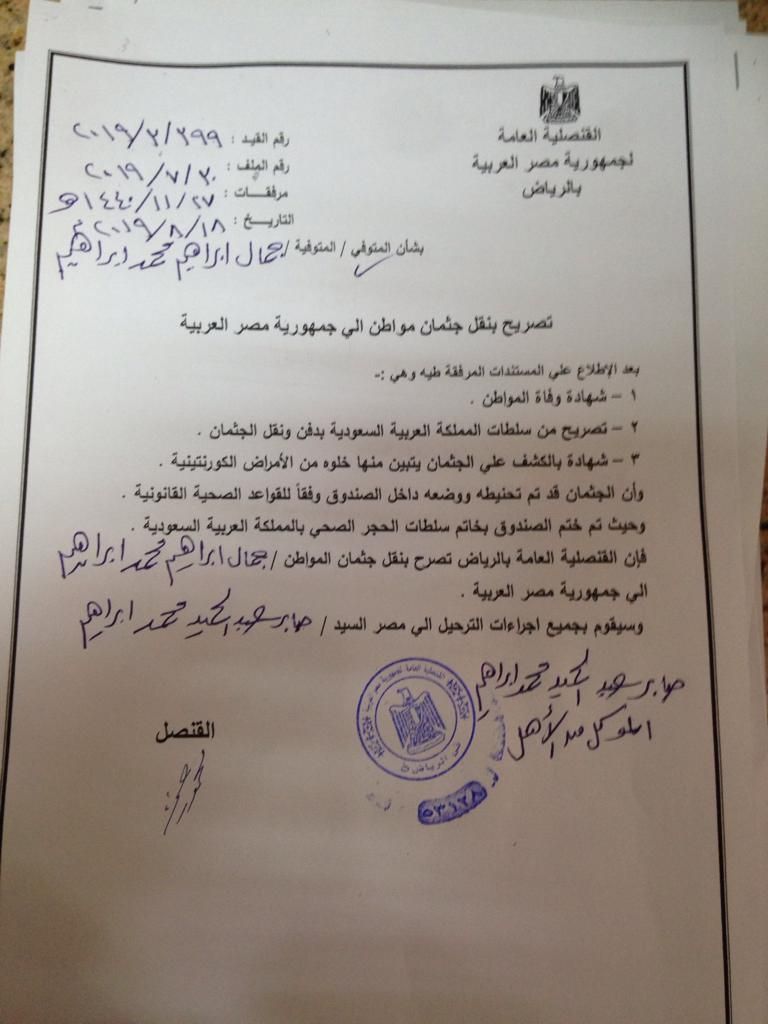 القنصلية العامة
لجمهورية مصر العربية
بالرياض
رقم القيد : ٢٠١٩/٣/٣٩٩
رقم الملف : ٢٠١٩/٧/٣٠
مرفقات : ١٤٤٠/١١/٢٧هـ
التاريخ : ٢٠١٩/٨/١٨م
بشأن المتوفي / المتوفية / جمال ابراهيم محمد ابراهيم
تصريح بنقل جثمان مواطن الي جمهورية مصر العربية
بعد الإطلاع علي المستندات المرفقة طيه وهي :-
١ – شهادة وفاة المواطن .
٢ – تصريح من سلطات المملكة العربية السعودية بدفن ونقل الجثمان .
٣ – شهادة بالكشف علي الجثمان يتبين منها خلوه من الأمراض الكورنتينية .
وأن الجثمان قد تم تحنيطه ووضعه داخل الصندوق وفقاً للقواعد الصحية القانونية .
وحيث تم ختم الصندوق بخاتم سلطات الحجر الصحي بالمملكة العربية السعودية .
فإن القنصلية العامة بالرياض تصرح بنقل جثمان المواطن / جمال ابراهيم محمد ابراهيم
الي جمهورية مصر العربية .
وسيقوم بجميع اجراءات الترحيل الي مصر السيد / صابر عبد الحميد محمد ابراهيم
صابر عبد الحميد محمد ابراهيم
الموكل من الأهل
القنصل
القنصلية العامة لجمهورية مصر العربية
في الرياض
٥٣١٢٨